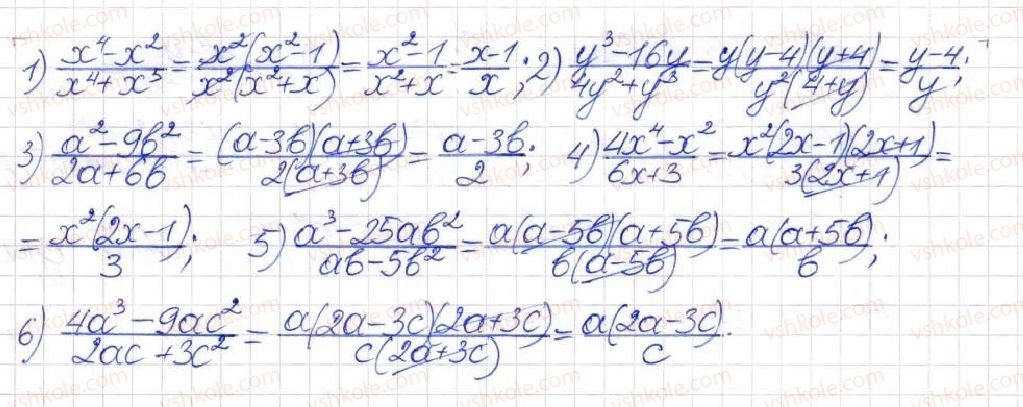 1) (x⁴-x²)/(x⁴+x³) = x²(x²-1)/x²(x²+x) = (x²-1)/(x²+x) = (x-1)/x; 2) (y³-16y)/(4y²+y³) = y(y-4)(y+4)/y²(4+y) = (y-4)/y;
3) (a²-9b²)/(2a+6b) = (a-3b)(a+3b)/2(a+3b) = (a-3b)/2; 4) (4x⁴-x²)/(6x+3) = x²(2x-1)(2x+1)/3(2x+1) =
= x²(2x-1)/3; 5) (a³-25ab²)/(ab-5b²) = a(a-5b)(a+5b)/b(a-5b) = a(a+5b)/b;
6) (4a³-9ac²)/(2ac+3c²) = a(2a-3c)(2a+3c)/c(2a+3c) = a(2a-3c)/c.